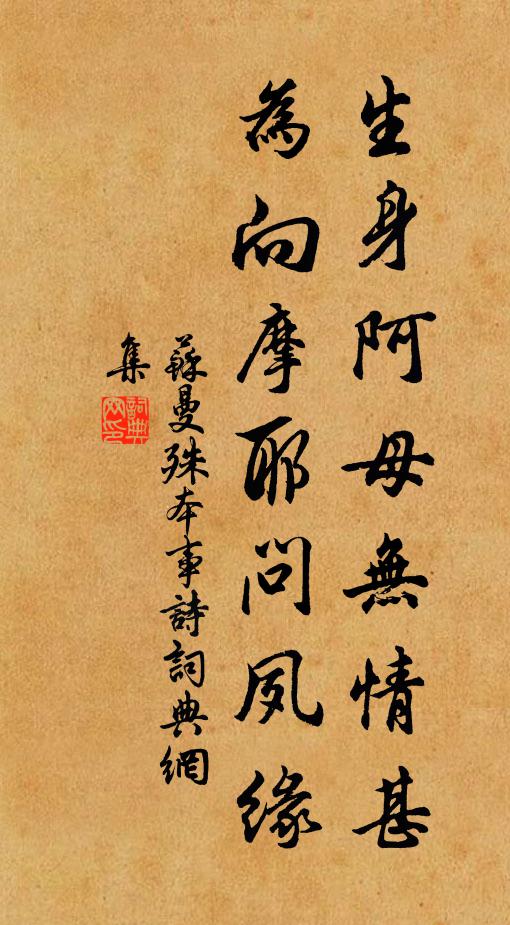 生身阿母無情甚
為向摩耶問夙緣
蘇曼殊本事詩詞典網
集
詞典網印